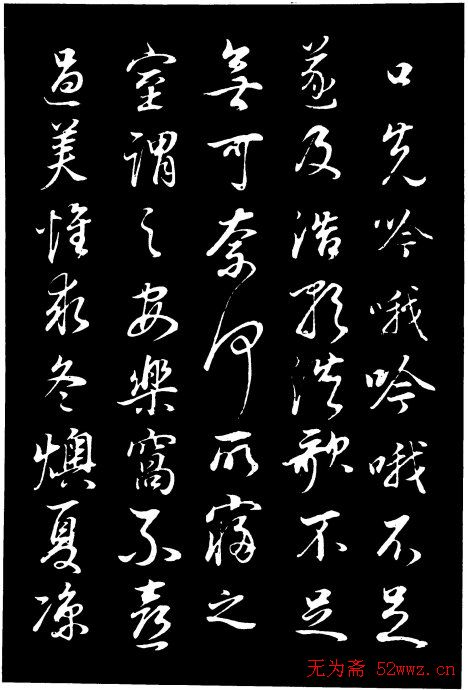 口先吟哦吟哦不足
遂及浩歌浩歌不足
無可奈何所寢之
室謂之安樂窩不喜
過美惟求冬燠夏凉
无为斋 52wwz.cn